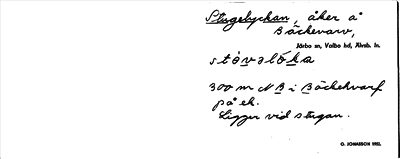 Stugelyckan, åker å
Bäckevarv,
Järbo sn, Valbo hd, Älvsb. ln.
stóvəlö̀ka
300 m N B i Bäckehvarf
på ek.
Ligger vid stugan.
O. JONASSON 1952.